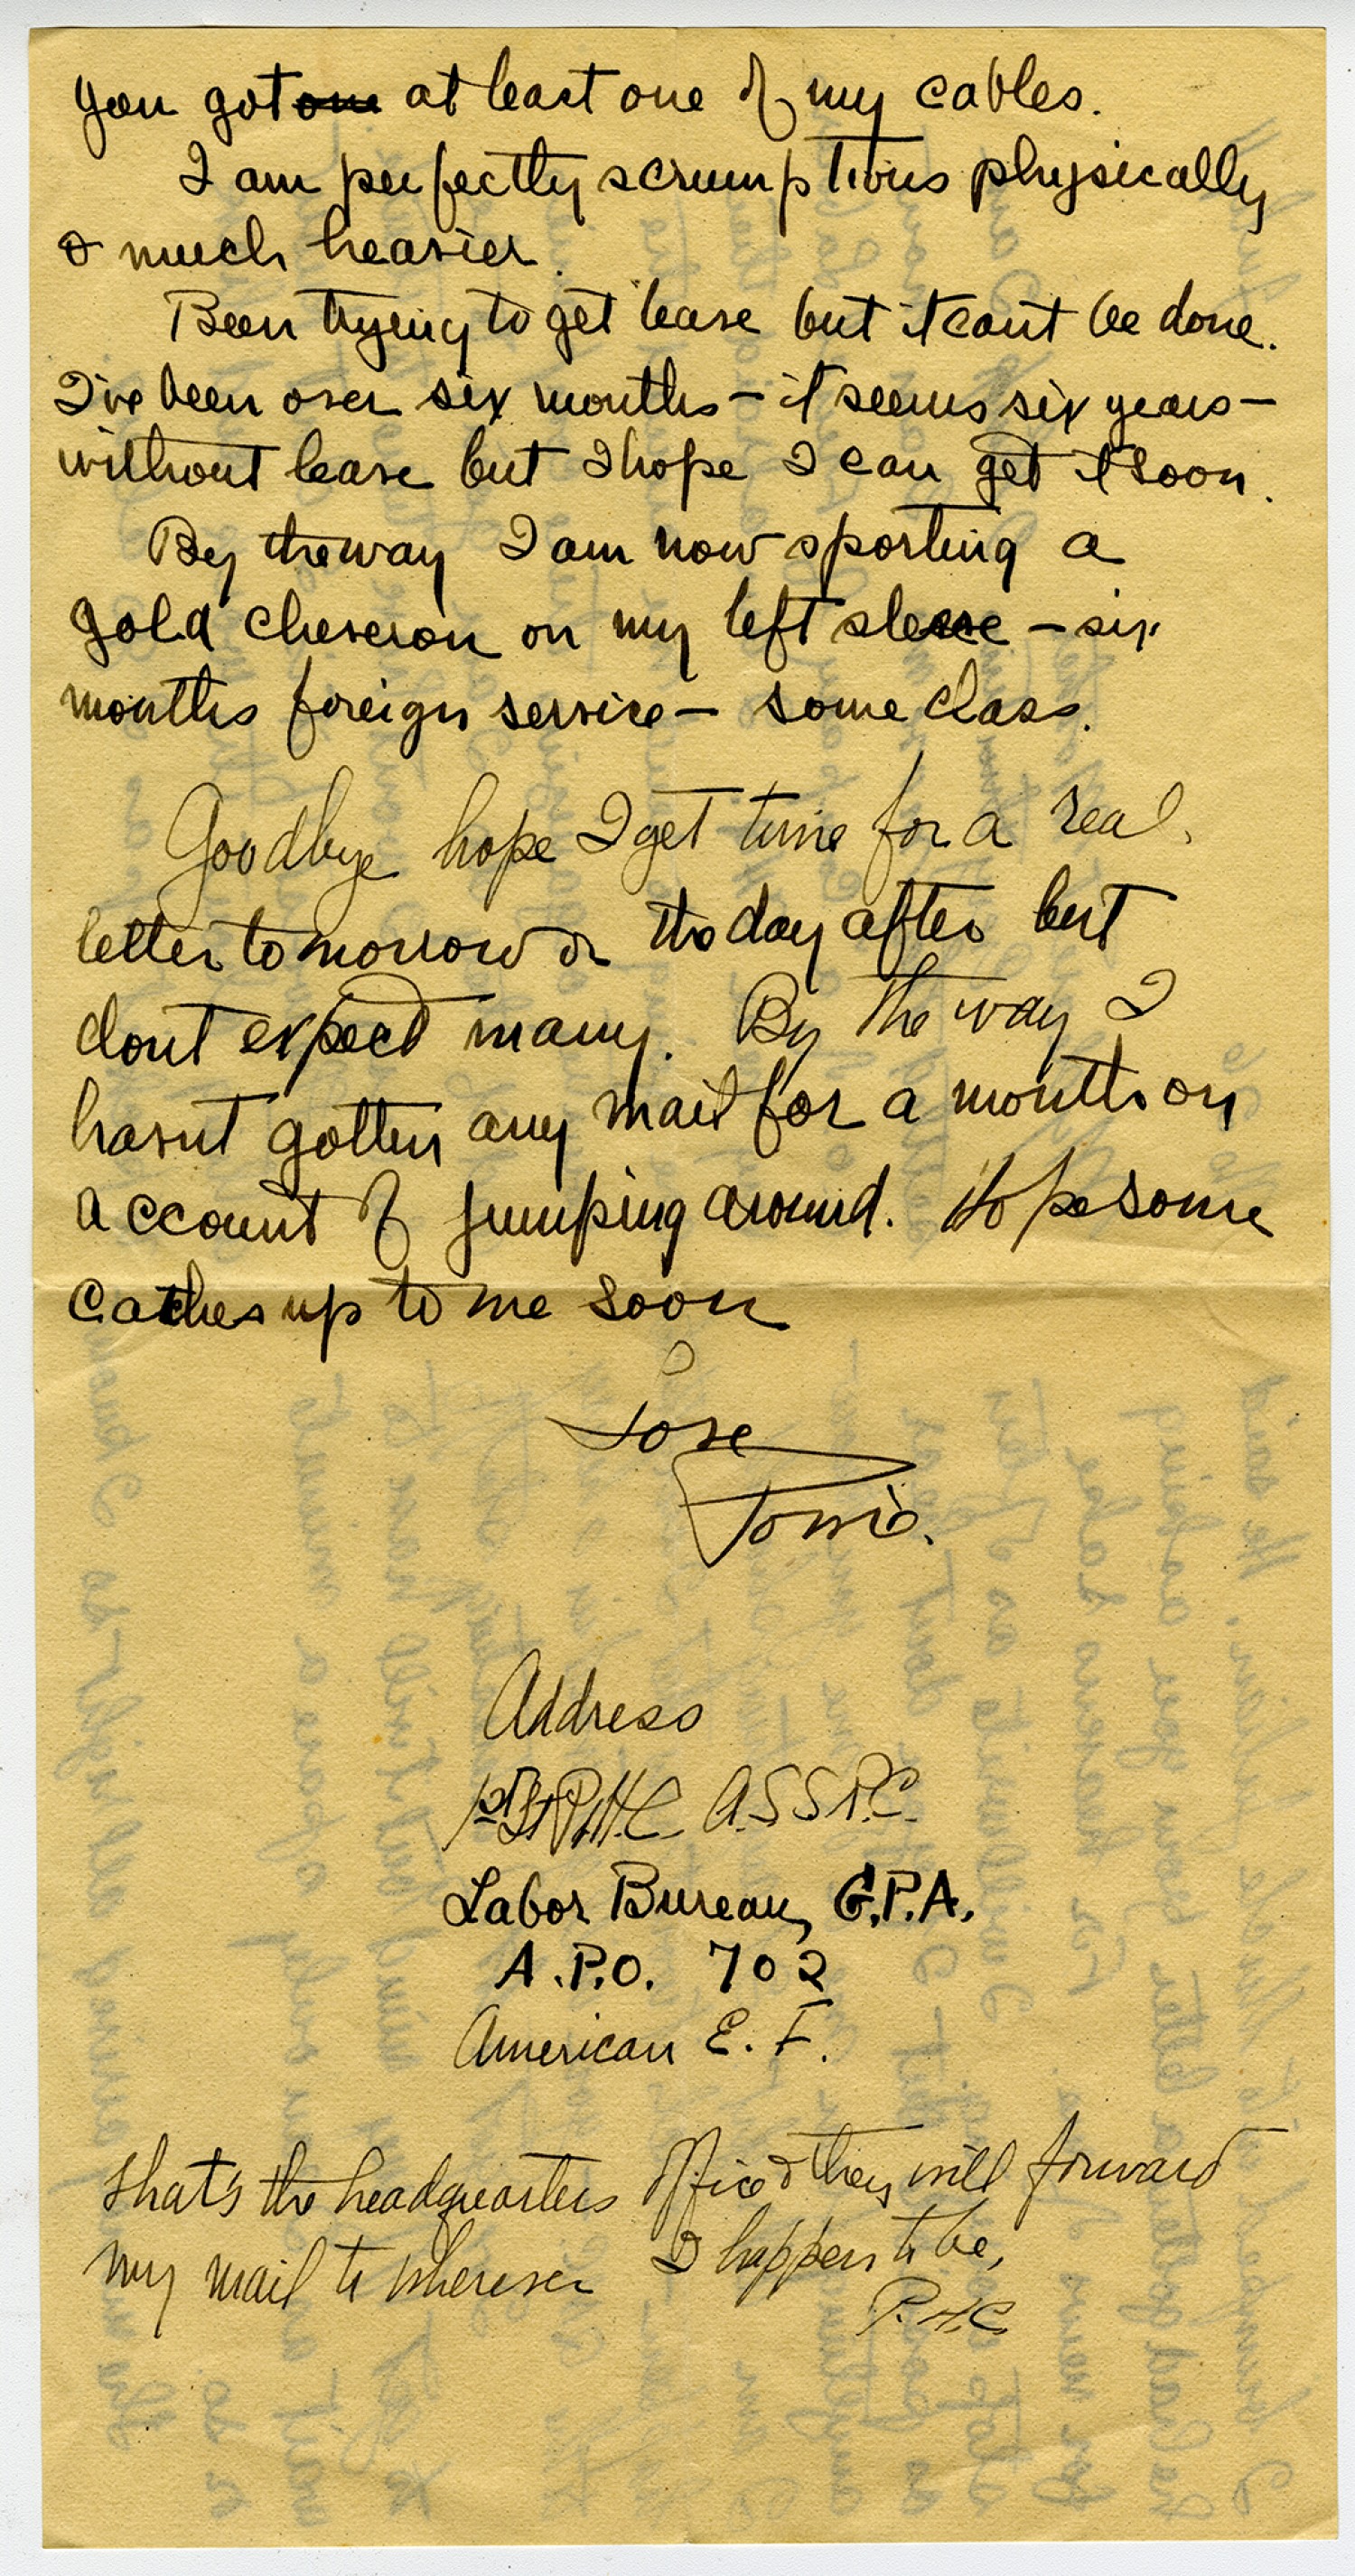 you got one at least one of my cables.
I am perfectly scrumptious physically
& much heavier.
Been trying to get leave but it cant be done.
I've been over six months – it seems six years –
without leave but I hope I can get it soon.
By the way I am now sporting a
gold cheveron on my left sleeve – six
months foreign service – some class.
Goodbye hope I get time for a real
letter tomorrow or the day after but
dont expect many. By the way I
hasnt gotten any mail for a month on
account of jumping around. Hope some
catches up to me soon
Love
Address
1st Lt P.H.C. A.S.S.R.C.
Labor Bureau, G.P.A.
A.P.O. 702
American E. F.
That's the headquarters office & they will forward
my mail to wherever I happen to be,
P.H.C.